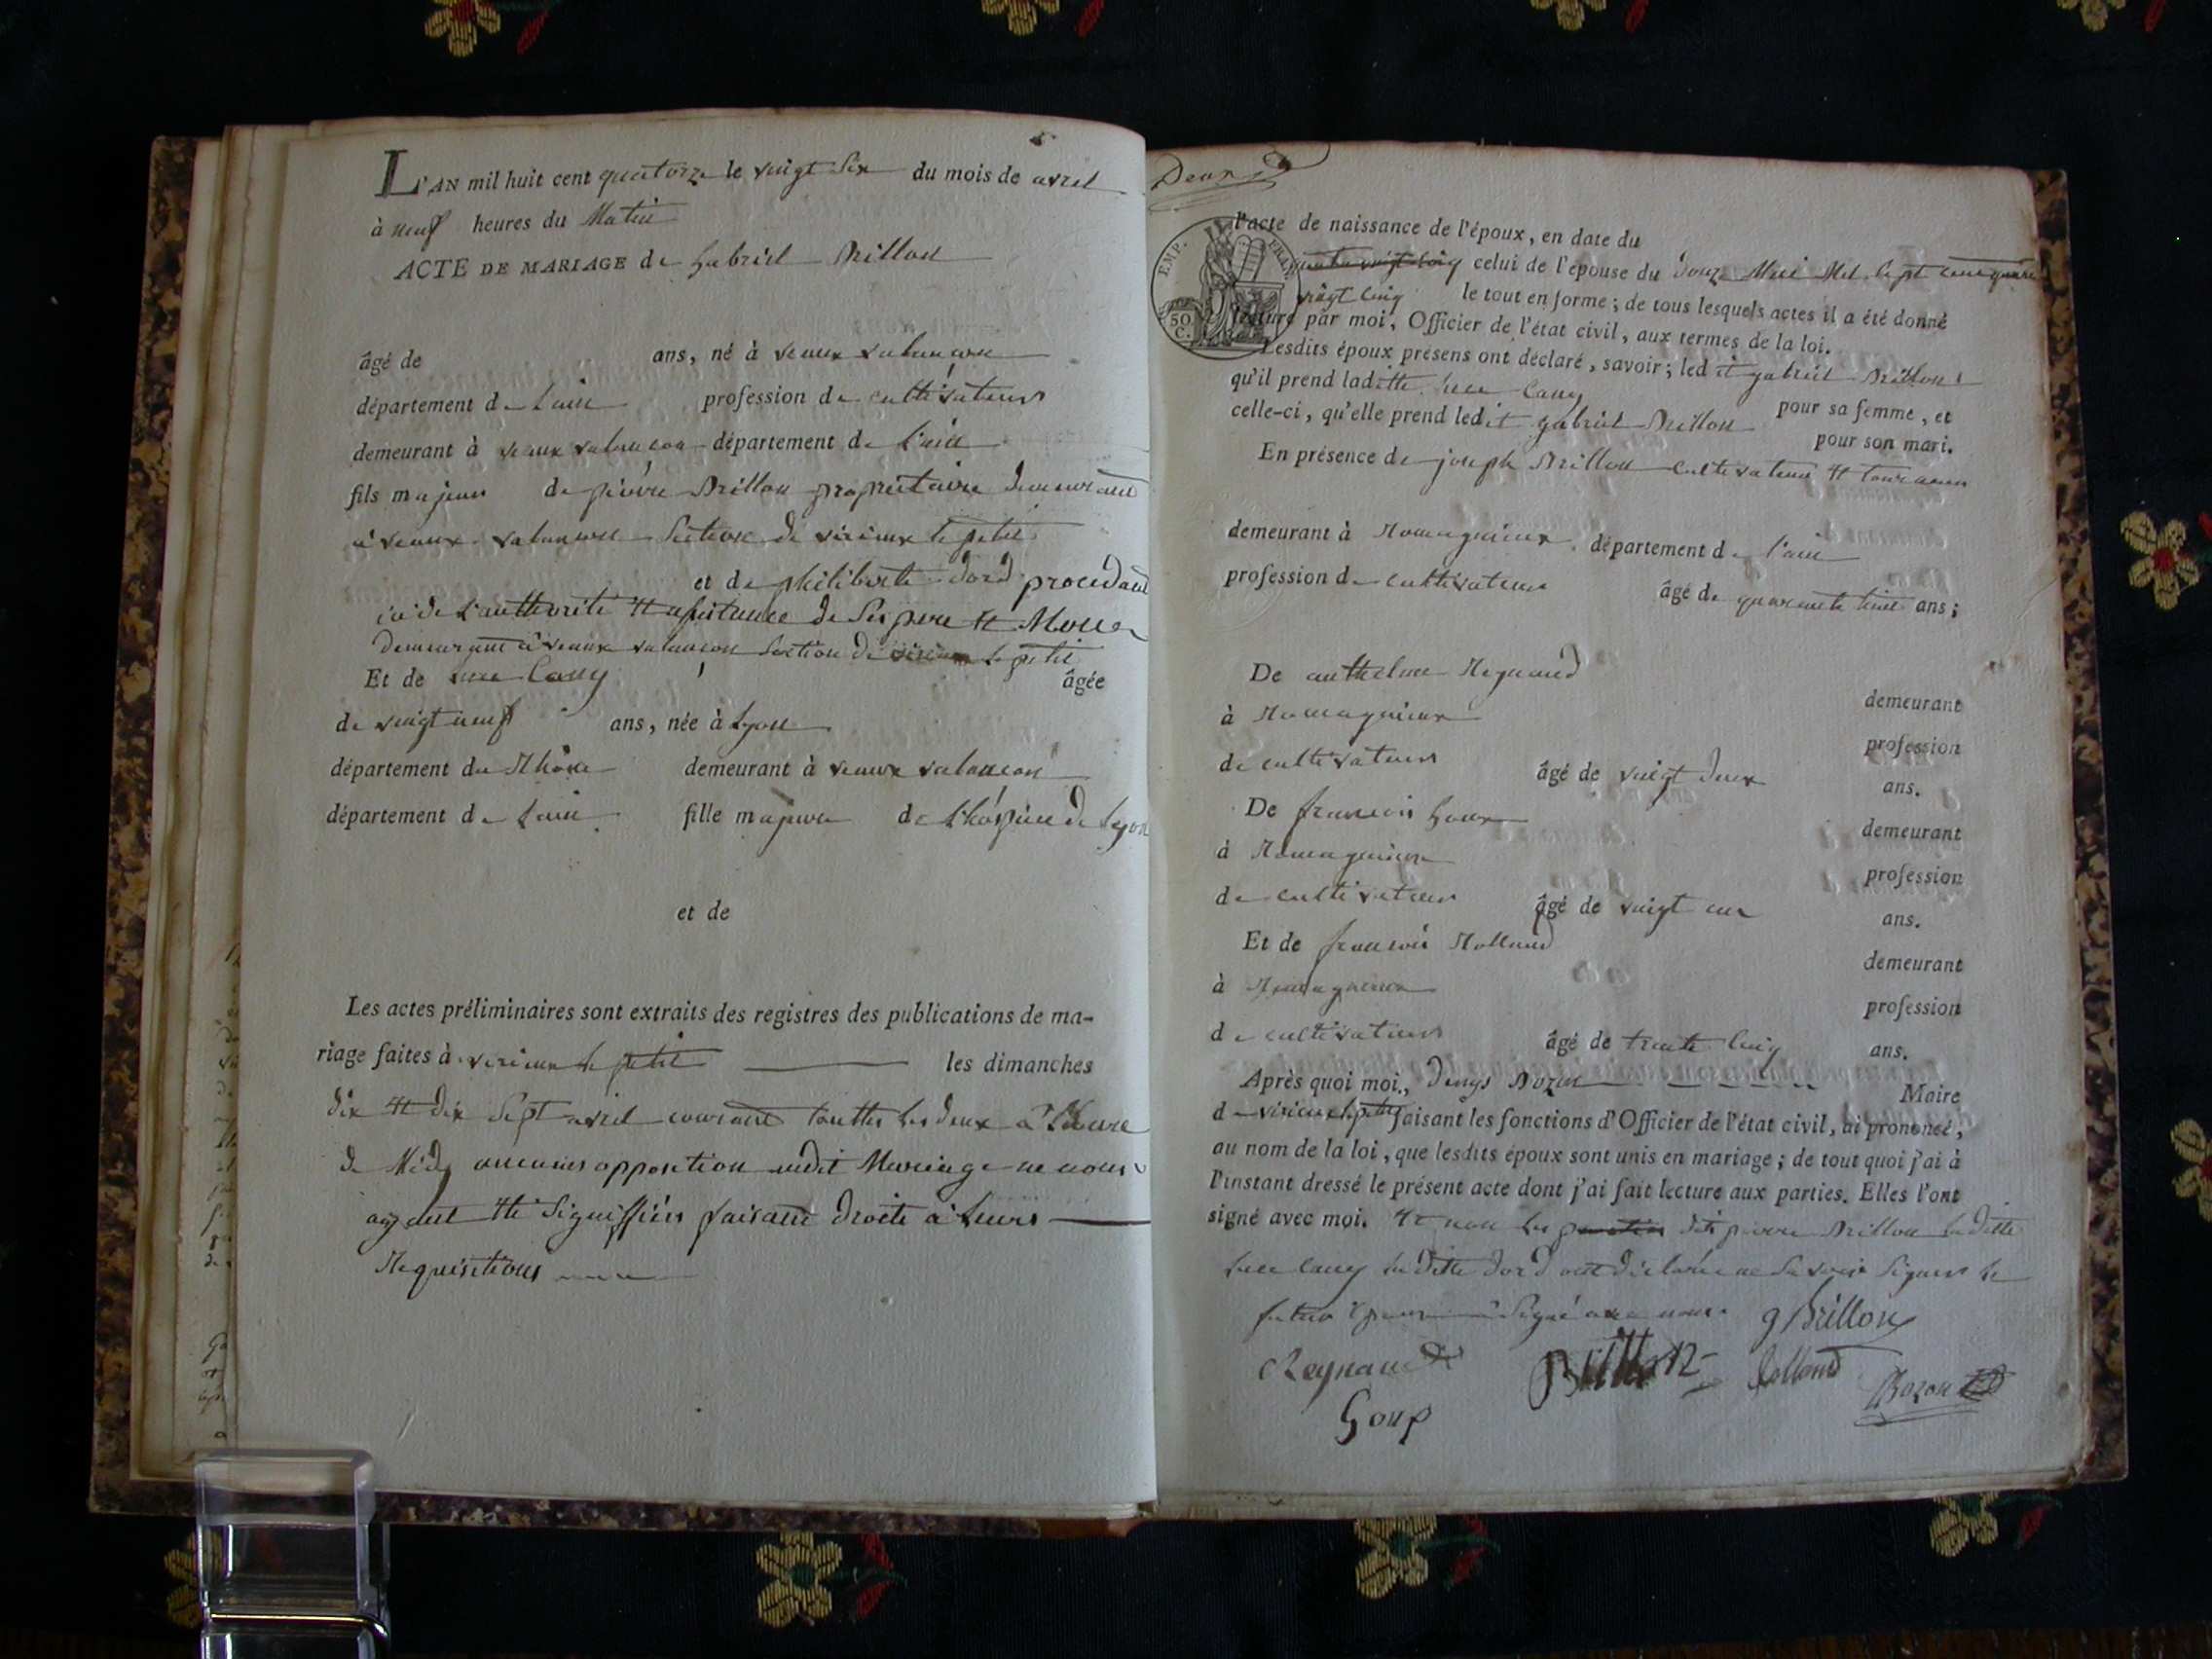 L'AN mil huit cent quatorze le vingt six du mois de avril
à neuf heures du Matin
ACTE DE MARIAGE de gabriel Brillon
âgé de ans, né à
département de Lain profession de cultivateur
demeurant à département de L'ain
fils majeur de pierre Brillon proprietaire demeurant
à section de virieux le petit
et de philiberte procedant
de L'authorité et assistance de Ses pere et Mere
demeurant à section de virieux le petit
Et de âgée
de vingt neuf ans, née à Lyon
département du Rhône demeurant à
département de Lain fille majeure de L'hospice de Lyon
et de
Les actes préliminaires sont extraits des registres des publications de ma-
riage faites à virieux le petit les dimanches
dix et dix Sept avril courant touttes les deux à l'heure
de Midy aucunes opposition audit Mariage ne nous
ayant été Signiffiées faisant droits à Leurs
Requisitions
Deux
l'acte de naissance de l'époux, en date du
celui de l'épouse du douze Mai Mil Sept cent quatre
vingt cinq le tout en forme; de tous lesquels actes il a été donné
lecture par moi, Officier de l'état civil, aux termes de la loi.
Lesdits époux présens ont déclaré, savoir; ledit gabriel Brillon
qu'il prend laditte pour sa femme, et
celle-ci, qu'elle prend ledit gabriel Brillon pour son mari.
En présence de joseph Brillon cultivateur
demeurant à Romagnieux département de l'ain
profession de cultivateur âgé de quarante ans;
De anthelme Reynaud demeurant
à Romagnieux profession
de cultivateur âgé de vingt deux ans.
De francois demeurant
à Romagnieux profession
de cultivateur âgé de vingt ans.
Et de francois Rolland demeurant
à Romagnieux profession
de cultivateur âgé de trente cinq ans.
Après quoi moi, Denys Bozon Maire
de virieux le petit faisant les fonctions d'Officier de l'état civil, ai prononcé,
au nom de la loi, que lesdits époux sont unis en mariage; de tout quoi j'ai à
l'instant dressé le présent acte dont j'ai fait lecture aux parties. Elles l'ont
signé avec moi. et non les dits pierre Brillon laditte
laditte ont déclarée ne Savoir Signer le
futur époux à Signé avec nous. g Brillon
Reynaud Brillon Rolland Bozon
Goux
EMP. FRAN.
50 C.